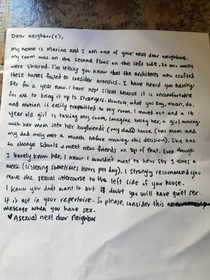 Dear neighbor(s),
My name is Marina and I am one of your next door neighbors.
My room was on the second floor on the left side, so our walls
were shared. I'm letting you know that the architects who crafted
these homes failed to consider acoustics. I have heard you having
sex for a year now. I have kept silent because it is uncomfortable
for me to bring it up to strangers. However, what you say, moan, do,
and motion is easily transmitted to my room. I moved out and a 16
year old girl is taking my room. Imagine being her, a girl moving
with her mom into her boyfriend (my dad's) house (her mom and
my dad only met a month before making this decision). She has
to change schools & meet new friends on top of that. Even though
I barely know her, I know I wouldn't want to hear sex 3 times a
week (listening sometimes hours per day). I strongly recommend you
move the sexual intercourse to the left side of your house.
I know you don't want to but I doubt you will have quiet sex.
It is not in your repertoire. So please, consider this
message when you have sex.
♥ Asexual next door neighbor